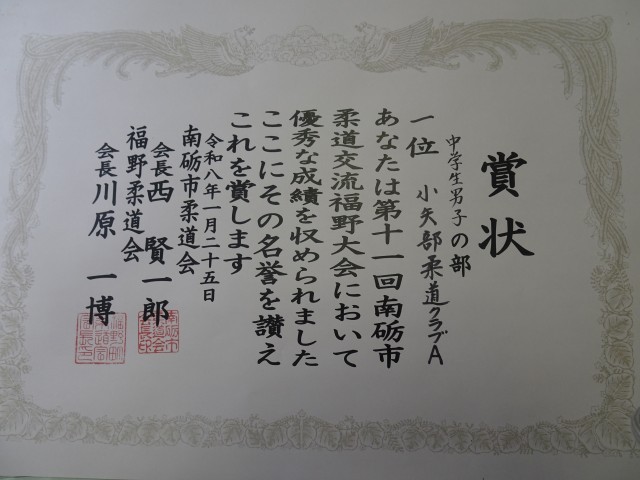 賞状
中学生男子の部
一位 小矢部柔道クラブA
あなたは第十一回南砺市
柔道交流福野大会において
優秀な成績を収められました
ここにその名誉を讃え
これを賞します
令和八年一月二十五日
南砺市柔道会
会長 西 賢一郎
福野柔道会
会長 川原 一博